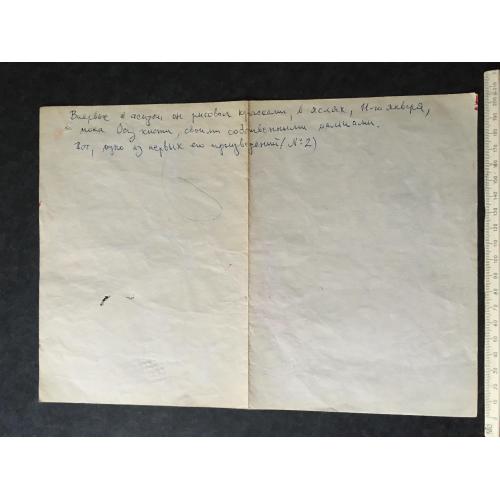 Впервые в жизни он рисовал красками, в яслях, 11-го января,
пока без кисти, своими собственными пальцами.
Вот, одно из первых его произведений! (№2)